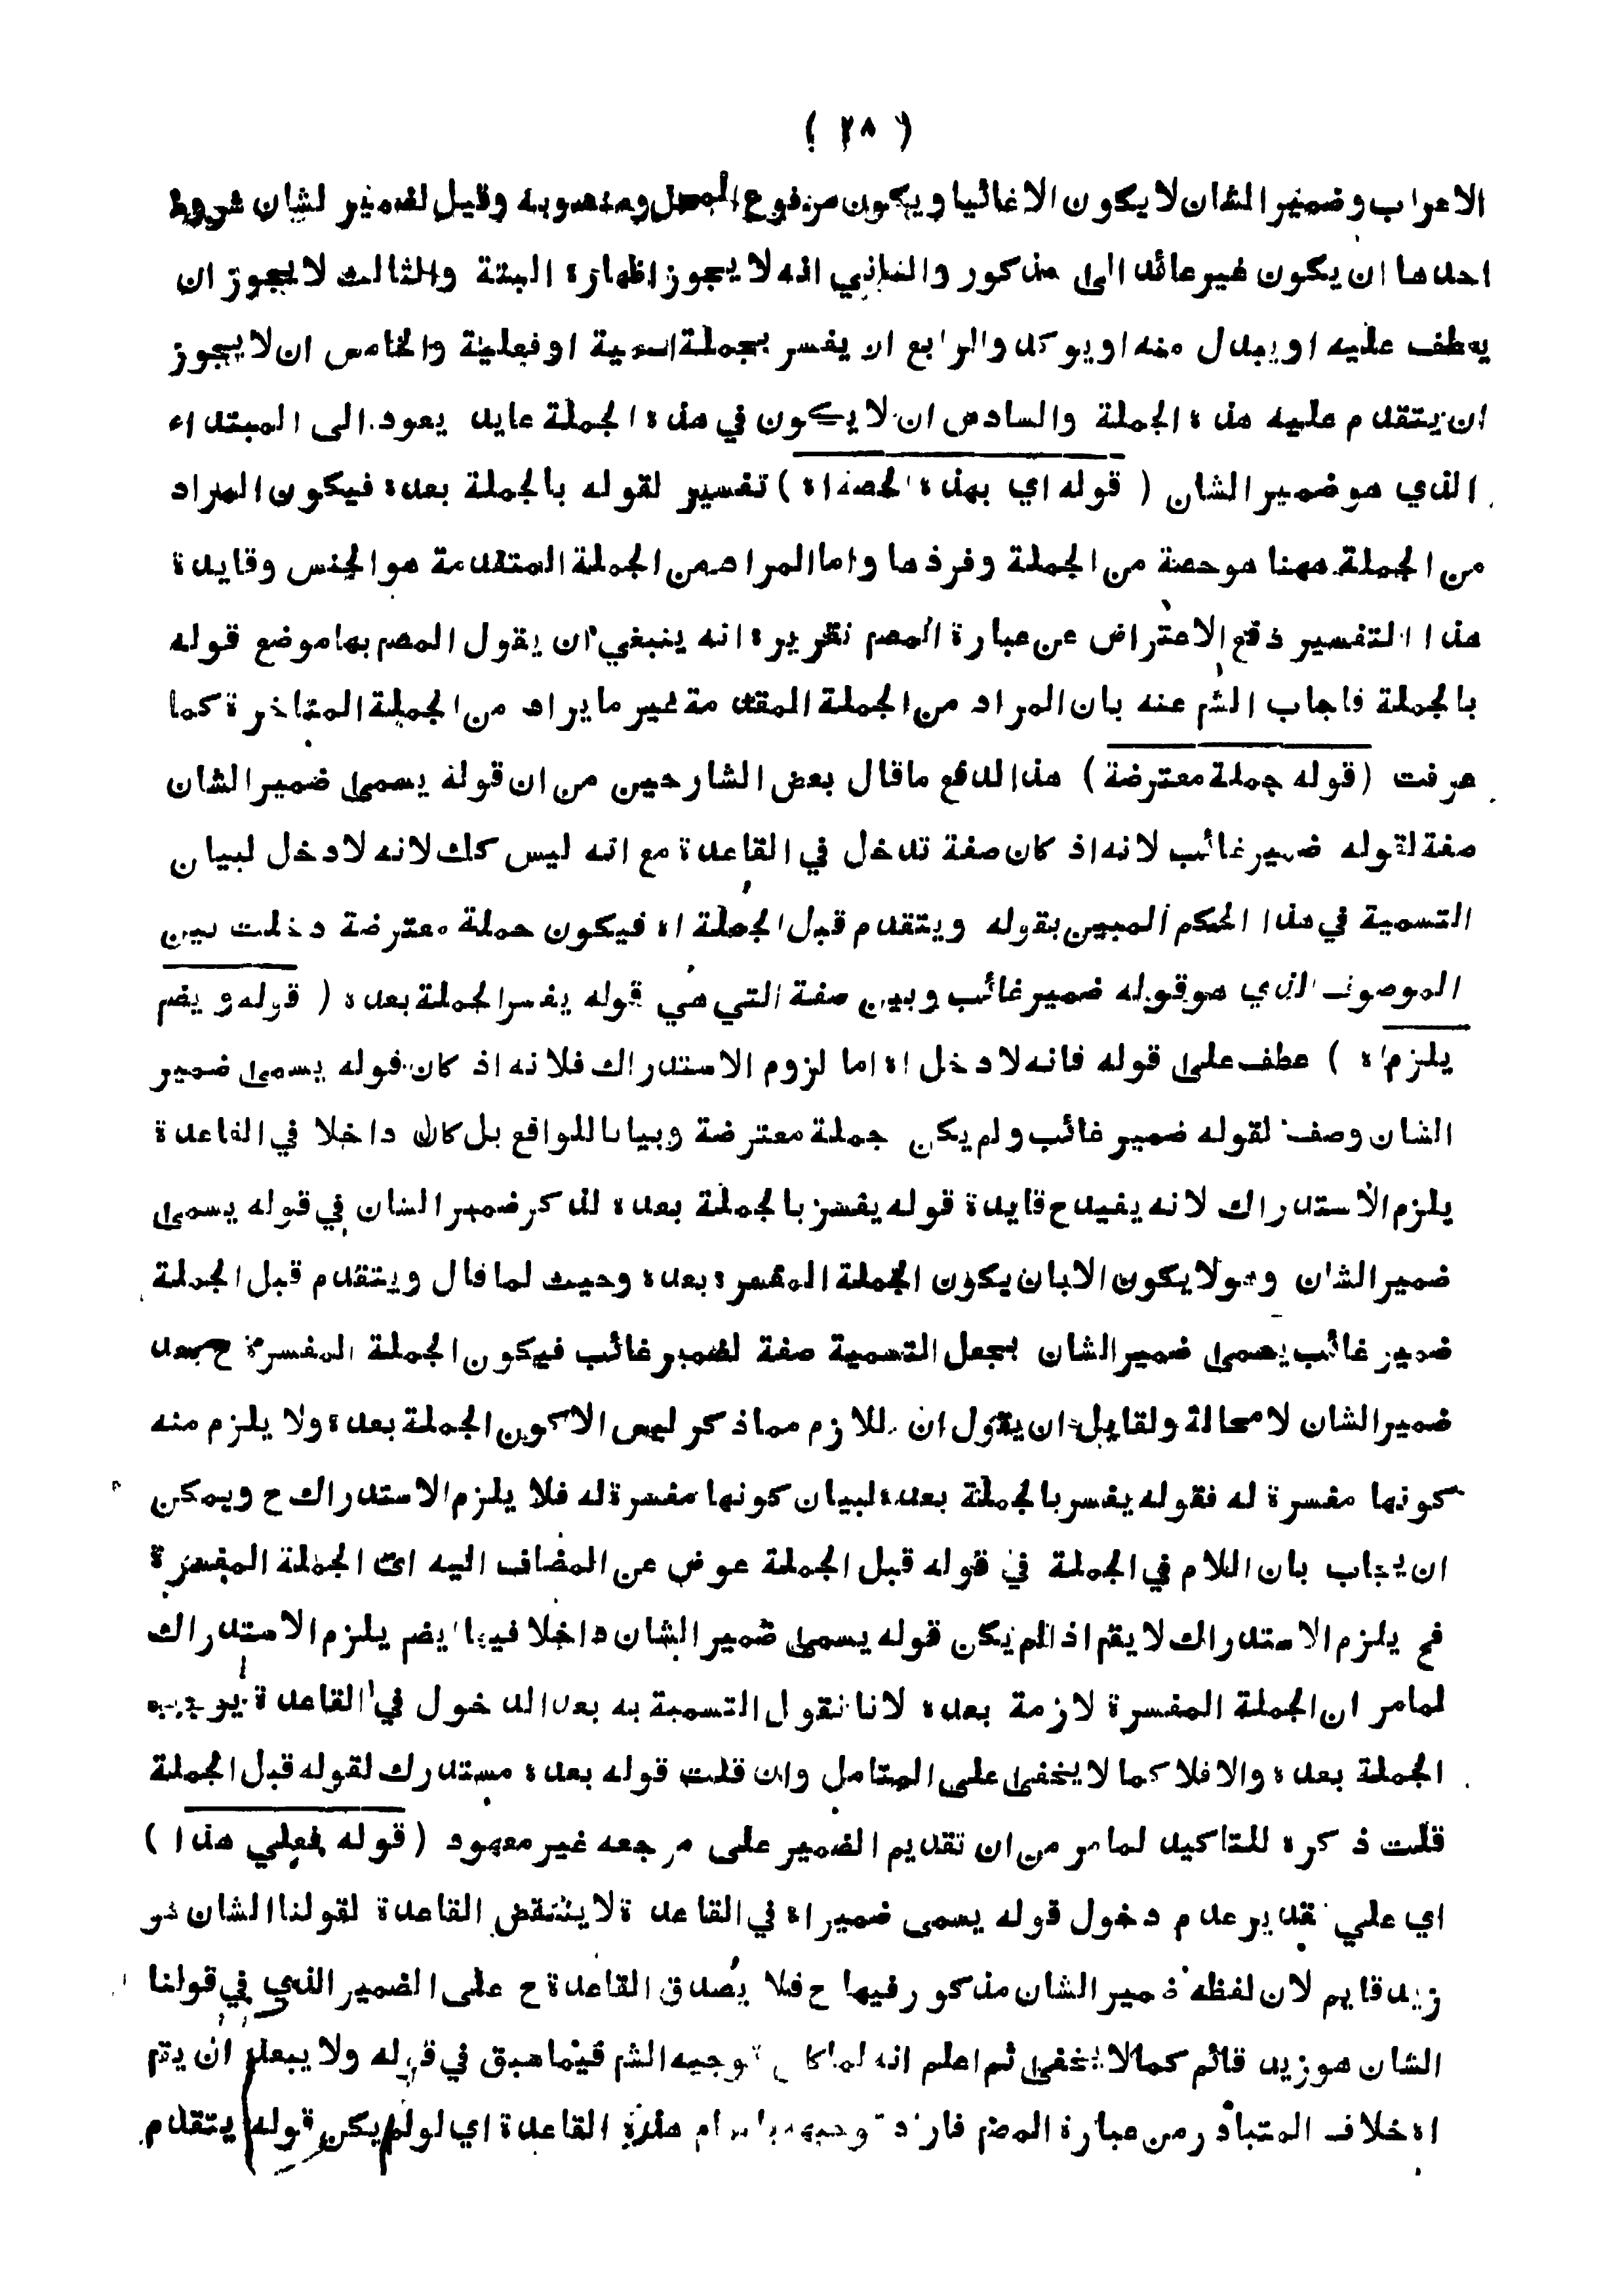 ( ٢٨ )
الاعراب وضمير الشان لا يكون الا غائبا ويكون مرفوع المحل ومنصوبه وقيل لضمير لشان شروط
احدها ان يكون غير عائد الى مذكور والثاني انه لا يجوز اظهاره البتة والثالث لا يجوز ان
يعطف عليه او يبدل منه او يوكد والرابع ان يفسر بجملة اسمية او فعلية والخامس ان لا يجوز
ان يتقدم عليه هذه الجملة والسادس ان لا يكون في هذه الجملة عايد يعود الى المبتداء
الذي هو ضمير الشان ( قوله اي بهذه الحصة اه ) تفسير لقوله بالجملة بعده فيكون المراد
من الجملة ههنا هو حصة من الجملة وفردها واما المراد من الجملة المتقدمة هو الجنس وفايدة
هذا التفسير دفع الاعتراض عن عبارة المصم تقريره انه ينبغي ان يقول المصم بها موضع قوله
بالجملة فاجاب الشم عنه بان المراد من الجملة المقدمة غير ما يراد من الجملة المتاخرة كما
عرفت ( قوله جملة معترضة ) هذا لدفع ما قال بعض الشارحين من ان قوله يسمى ضمير الشان
صفة لقوله ضمير غائب لانه اذ كان صفة تدخل في القاعدة مع انه ليس كك لانه لا دخل لبيان
التسمية في هذا الحكم المبين بقوله ويتقدم قبل الجملة اه فيكون جملة معترضة دخلت بين
الموصوف الذي هو قوله ضمير غائب وبين صفة التي هي قوله يفسر الجملة بعده ( قوله و يضم
يلزم اه ) عطف على قوله فانه لا دخل اه اما لزوم الاستدراك فلانه اذ كان قوله يسمى ضمير
الشان وصف لقوله ضمير غائب ولم يكن جملة معترضة وبيانا للواقع بل كان داخلا في القاعدة
يلزم الاستدراك لانه يفيد ح فايدة قوله يفسر بالجملة بعده لذكر ضمير الشان في قوله يسمى
ضمير الشان وهو لا يكون الا بان يكون الجملة المفسرة بعده وحيث لما قال ويتقدم قبل الجملة
ضمير غائب يسمى ضمير الشان بجعل التسمية صفة لضمير غائب فيكون الجملة المفسرة ح بعد
ضمير الشان لا محالة ولقايل ان يقول ان اللازم مما ذكر ليس الا كون الجملة بعده ولا يلزم منه
كونها مفسرة له فقوله يفسر بالجملة بعده لبيان كونها مفسرة له فلا يلزم الاستدراك ح ويمكن
ان يجاب بان اللام في الجملة في قوله قبل الجملة عوض عن المضاف اليه اى الجملة المفسرة
فح يلزم الاستدراك لا يقم اذ الم يكن قوله يسمى ضمير الشان داخلا فيها ايضم يلزم الاستدراك
لما مر ان الجملة المفسرة لازمة بعده لانا نقول التسمية به بعد الدخول في القاعدة يوجب
الجملة بعده والا فلا كما لا يخفى على المتامل وان قلت قوله بعده مستدرك لقوله قبل الجملة
قلت ذكره للتاكيد لما مر من ان تقديم الضمير على مرجعه غير معهود ( قوله فعلي هذا )
اي علي تقدير عدم دخول قوله يسمى ضمير اه في القاعدة لا ينتقض القاعدة لقولنا الشان هو
زيد قايم لان لفظه ضمير الشان مذكور فيها ح فلا يصدق القاعدة ح على الضمير الذي في قولنا
الشان هو زيد قائم كما لا يخفى ثم اعلم انه لما كان توجيه الشم فيما سبق في قوله ولا يبعد ان يتم
اه خلاف المتبادر من عبارة المصم فاراد توجيهه هذه القاعدة اي لو لم يكن قوله يتقدم